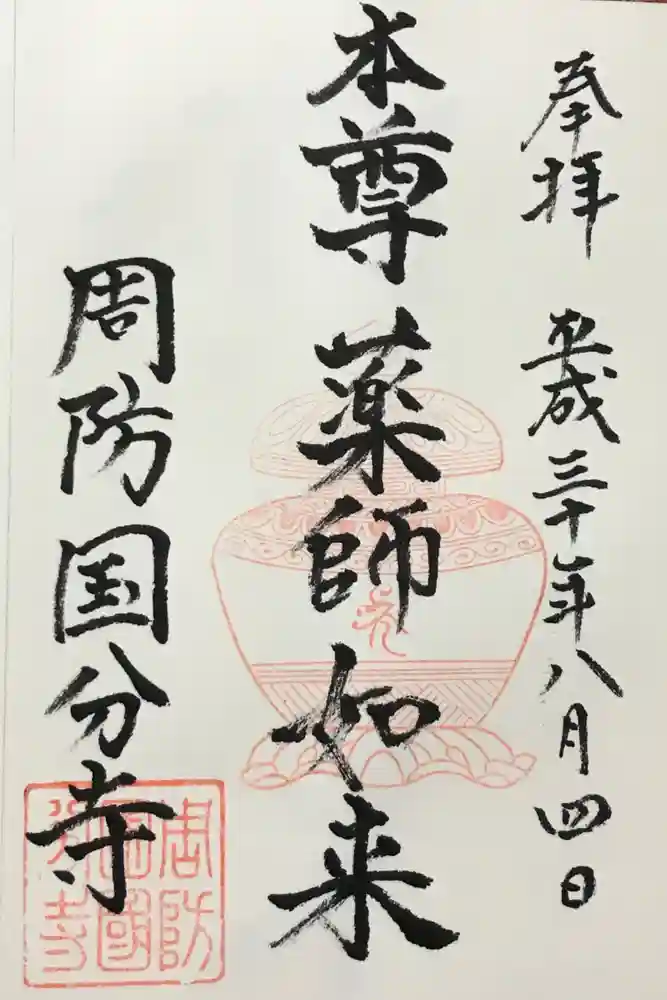 奉拝 平成三十年八月四日
本尊薬師如来
周防国分寺
周防
國
分寺